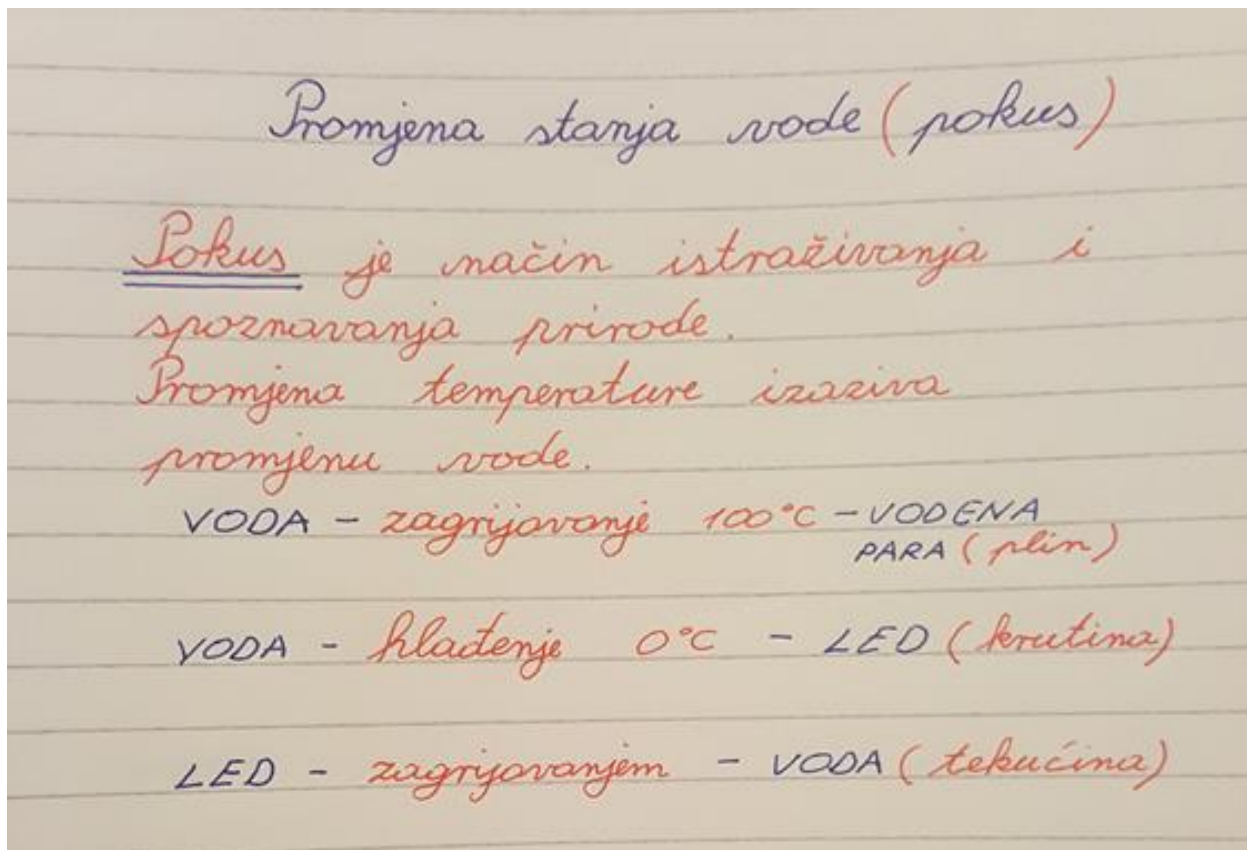 Promjena stanja vode (pokus)
Pokus je način istraživanja i
spoznavanja prirode.
Promjena temperature izaziva
promjenu vode.
VODA - zagrijavanje 100°C - VODENA
PARA (plin)
VODA - hlađenje 0°C - LED (krutina)
LED - zagrijavanjem - VODA (tekućina)